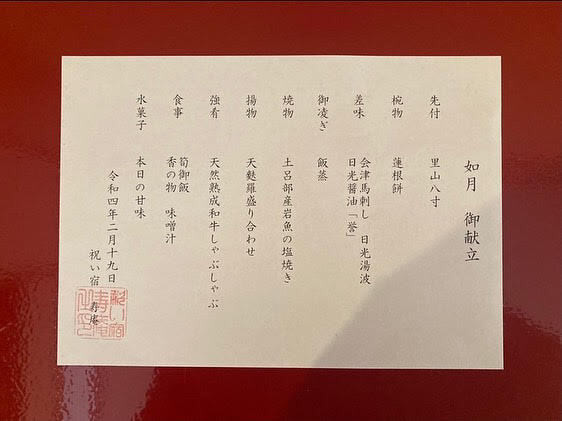 如月　御献立
先付　里山八寸
椀物　蓮根餅
差味　会津馬刺し　日光湯波
日光醤油「誉」
御凌ぎ　飯蒸
焼物　土呂部産岩魚の塩焼き
揚物　天麩羅盛り合わせ
強肴　天然熟成和牛しゃぶしゃぶ
食事　筍御飯
香の物　味噌汁
水菓子　本日の甘味
令和四年二月十九日
祝い宿　寿庵